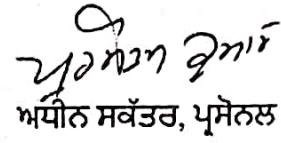 ਕੁਮਾਰ
ਅਧੀਨ ਸਕੱਤਰ, ਪ੍ਰਸੋਨਲ